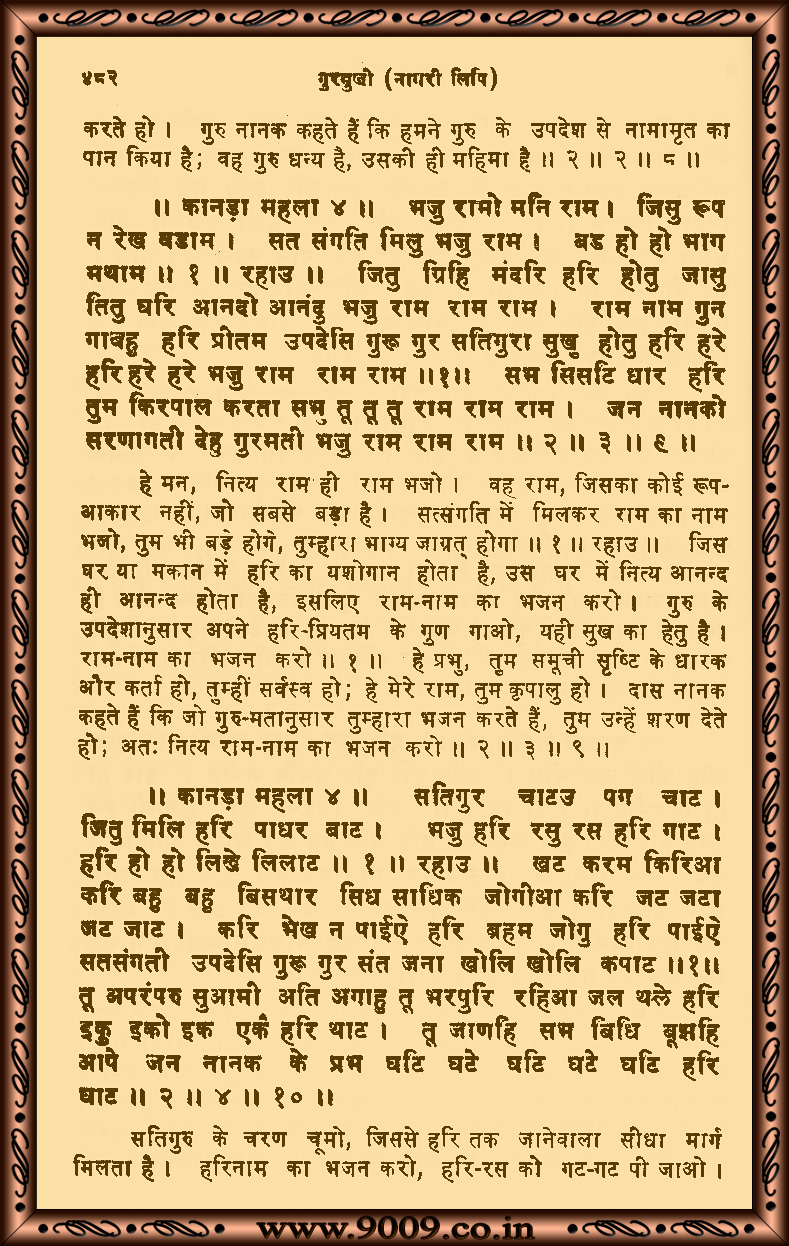 ४८२ गुरमुखी (नागरी लिपि)
करते हो । गुरु नानक कहते हैं कि हमने गुरु के उपदेश से नामामृत का
पान किया है; वह गुरु धन्य है, उसकी ही महिमा है ॥ २ ॥ २ ॥ ८ ॥
॥ कानड़ा महला ४ ॥ भजु रामो मनि राम । जिसु रूप
न रेख वडाम । सत संगति मिलु भजु राम । बड हो हो भाग
मथाम ॥ १ ॥ रहाउ ॥ जितु ग्रिहि मंदरि हरि होतु जासु
तितु घरि आनदो आनंदु भजु राम राम राम । राम नाम गुन
गावहु हरि प्रीतम उपदेसि गुरू गुर सतिगुरा सुखु होतु हरि हरे
हरि हरे हरे भजु राम राम राम ॥१॥ सभ सिसटि धार हरि
तुम किरपाल करता सभु तू तू तू राम राम राम । जन नानको
सरणागती देहु गुरमती भजु राम राम राम ॥ २ ॥ ३ ॥ ९ ॥
हे मन, नित्य राम ही राम भजो । वह राम, जिसका कोई रूप-
आकार नहीं, जो सबसे बड़ा है । सत्संगति में मिलकर राम का नाम
भजो, तुम भी बड़े होगे, तुम्हारा भाग्य जाग्रत् होगा ॥ १ ॥ रहाउ ॥ जिस
घर या मकान में हरि का यशोगान होता है, उस घर में नित्य आनन्द
ही आनन्द होता है, इसलिए राम-नाम का भजन करो । गुरु के
उपदेशानुसार अपने हरि-प्रियतम के गुण गाओ, यही सुख का हेतु है ।
राम-नाम का भजन करो ॥ १ ॥ हे प्रभु, तुम समूची सृष्टि के धारक
और कर्ता हो, तुम्हीं सर्वस्व हो; हे मेरे राम, तुम कृपालु हो । दास नानक
कहते हैं कि जो गुरु-मतानुसार तुम्हारा भजन करते हैं, तुम उन्हें शरण देते
हो; अतः नित्य राम-नाम का भजन करो ॥ २ ॥ ३ ॥ ९ ॥
॥ कानड़ा महला ४ ॥ सतिगुर चाटउ पग चाट ।
जितु मिलि हरि पाधर बाट । भजु हरि रसु रस हरि गाट ।
हरि हो हो लिखे लिलाट ॥ १ ॥ रहाउ ॥ खट करम किरिआ
करि बहु बहु बिसथार सिध साधिक जोगीआ करि जट जटा
जट जाट । करि भेख न पाईऐ हरि ब्रहम जोगु हरि पाईऐ
सतसंगती उपदेसि गुरू गुर संत जना खोलि खोलि कपाट ॥१॥
तू अपरंपरु सुआमी अति अगाहु तू भरपुरि रहिआ जल थले हरि
इकु इको इक एकै हरि थाट । तू जाणहि सभ बिधि बूझहि
आपे जन नानक के प्रभ घटि घटे घटि घटे घटि हरि
घाट ॥ २ ॥ ४ ॥ १० ॥
सतिगुरु के चरण चूमो, जिससे हरि तक जानेवाला सीधा मार्ग
मिलता है । हरिनाम का भजन करो, हरि-रस को गट-गट पी जाओ ।
www.9009.co.in